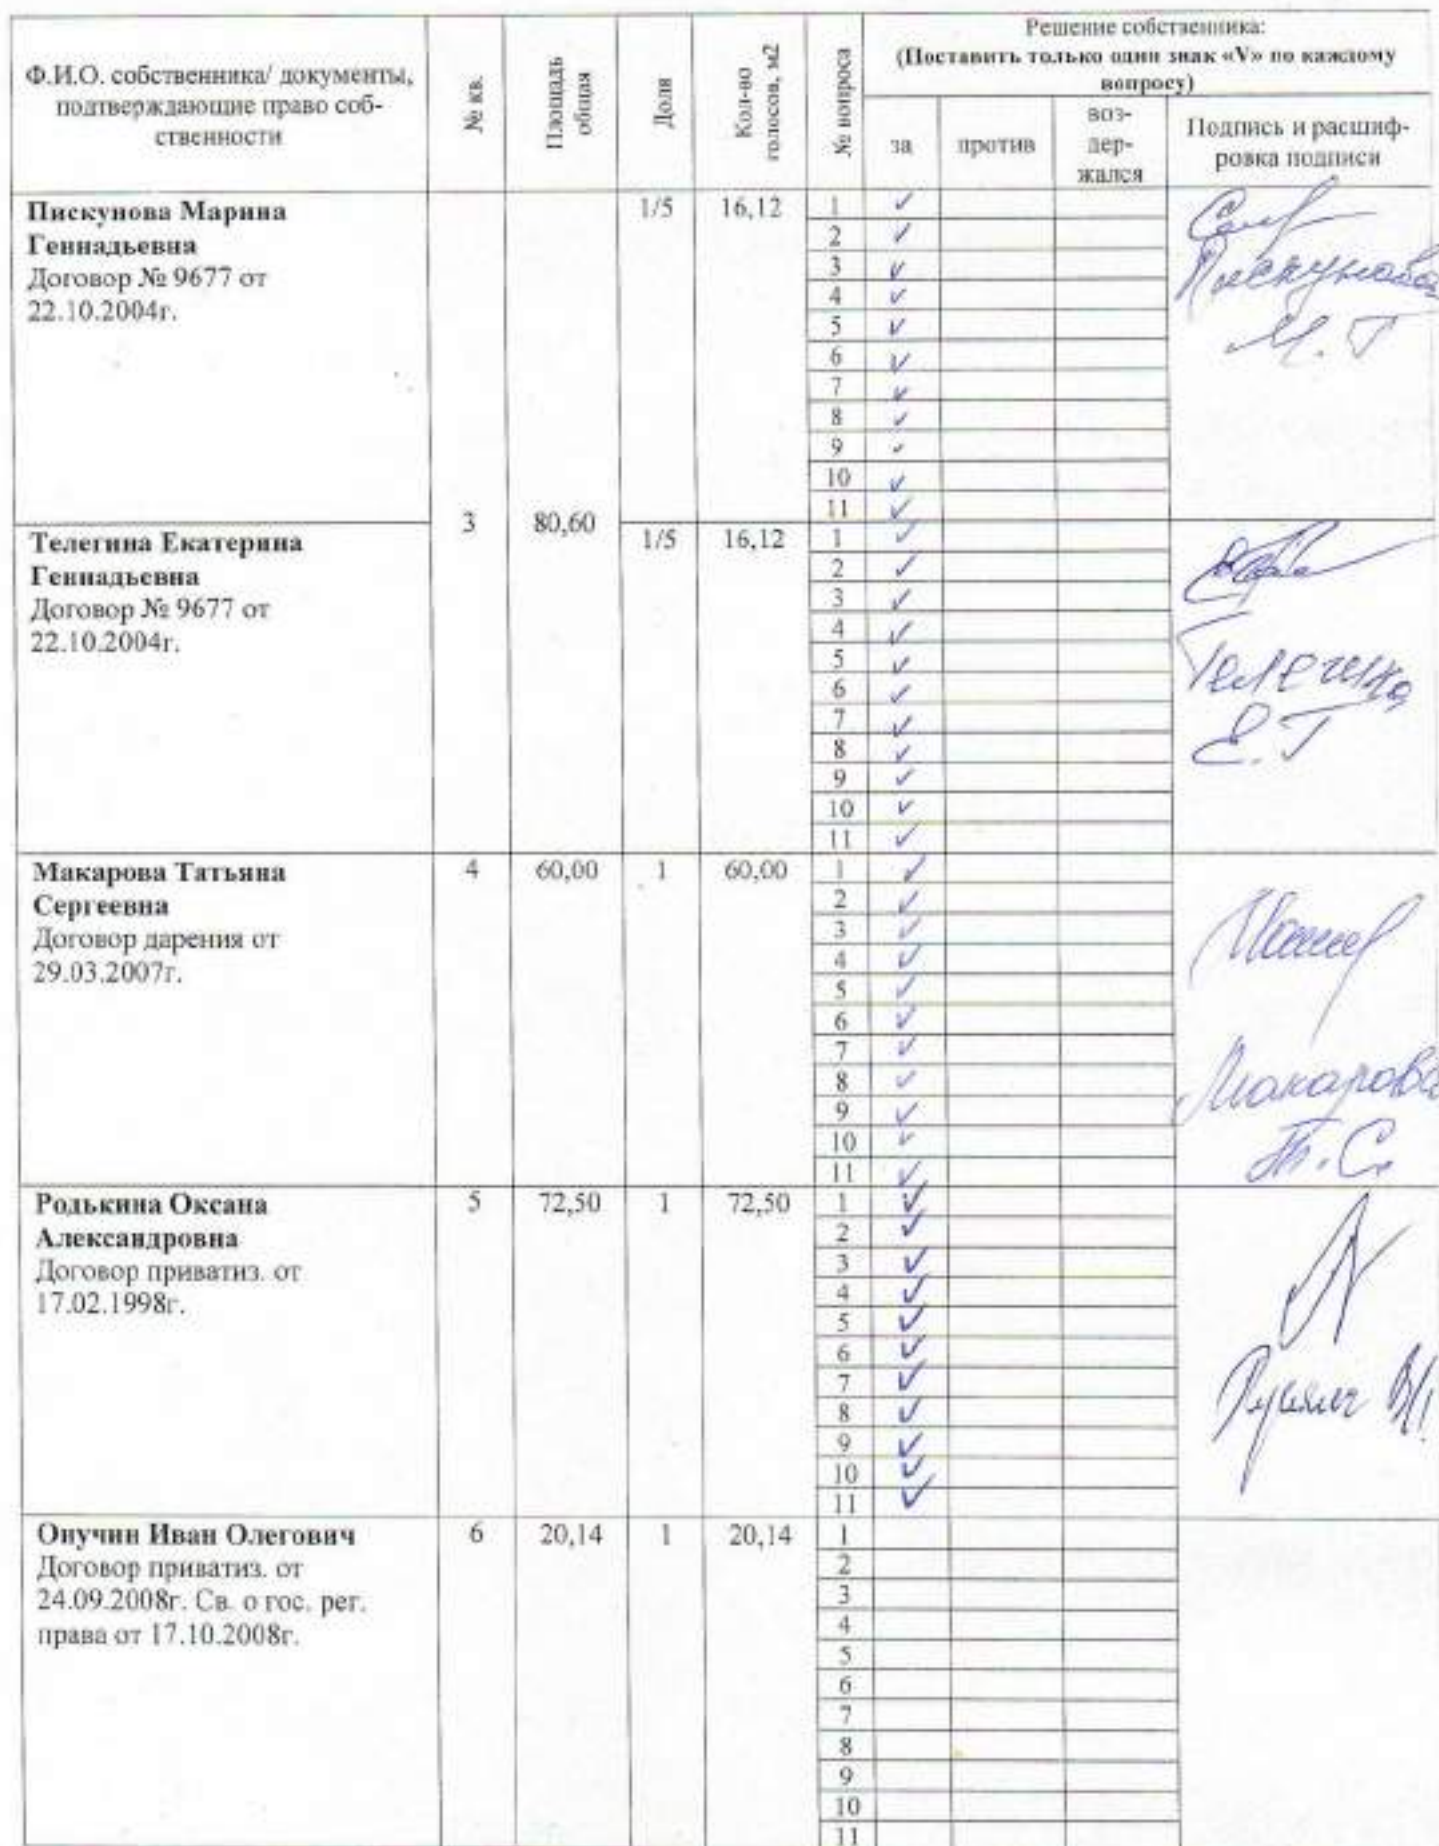 Ф.И.О. собственника/ документы,
подтверждающие право соб-
ственности
№ кв.
Площадь
общая
Доля
Кол-во
голосов, м2
№ вопроса
Решение собственника:
(Поставить только один знак «V» по каждому
вопросу)
за
против
воз-
дер-
жался
Подпись и расшиф-
ровка подписи
Пискунова Марина
Геннадьевна
Договор № 9677 от
22.10.2004г.
1/5
16,12
1 ✓
2 ✓
3 ✓
4 ✓
5 ✓
6 ✓
7 ✓
8 ✓
9 ✓
10 ✓
11 ✓
Пискунова
М. Г
3
80,60
Телегина Екатерина
Геннадьевна
Договор № 9677 от
22.10.2004г.
1/5
16,12
1 ✓
2 ✓
3 ✓
4 ✓
5 ✓
6 ✓
7 ✓
8 ✓
9 ✓
10 ✓
11 ✓
Телегина
Е. Г
Макарова Татьяна
Сергеевна
Договор дарения от
29.03.2007г.
4
60,00
1
60,00
1 ✓
2 ✓
3 ✓
4 ✓
5 ✓
6 ✓
7 ✓
8 ✓
9 ✓
10 ✓
11 ✓
Макарова
Т. С.
Родькина Оксана
Александровна
Договор приватиз. от
17.02.1998г.
5
72,50
1
72,50
1 ✓
2 ✓
3 ✓
4 ✓
5 ✓
6 ✓
7 ✓
8 ✓
9 ✓
10 ✓
11 ✓
Онучин Иван Олегович
Договор приватиз. от
24.09.2008г. Св. о гос. рег.
права от 17.10.2008г.
6
20,14
1
20,14
1
2
3
4
5
6
7
8
9
10
11